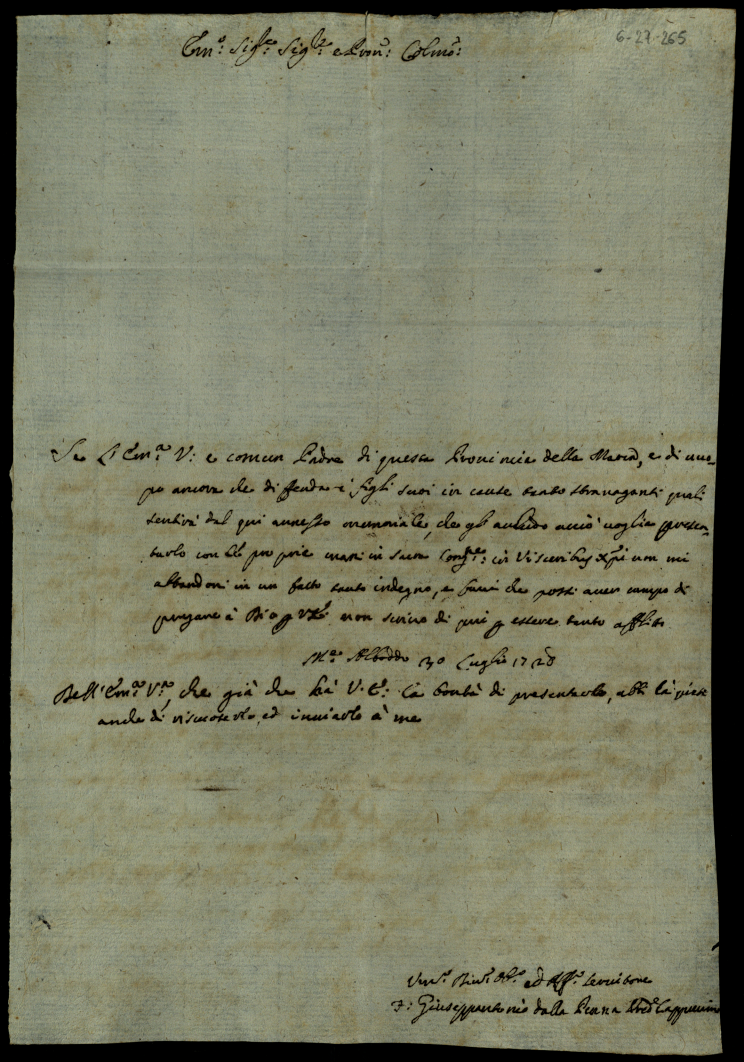 6-27-265
Em.o Sig.re Sig.re e Pron: Colmo:
Se L'Em.a V: e comun Padre di questa Provincia della Marca, e di uuo-
po ancora che diffenda i figli suoi in cause tanto stravaganti quali
sentirà dal qui annesso memoriale, che gl' acciò voglia presen-
tarlo con le proprie mani in sacra Cong.ne: in Visceribus Xpi non mi
abbandoni in un fatto tanto indegno, e farà che possi auer campo di
pregare à Dio p V.E. non di qui p essere tanto afflitto
M.te Alboddo 30 Luglio 1728
Dell'Em.a V.ra, che già che hà V. E: la bontà di presentarlo, abbi la pietà
anche di riscuoterlo, ed inuiarlo à me
Um.o Diu.o ed Aff.o Seruitore
F: Giuseppantonio dalla Penna Pred.re Cappuccino